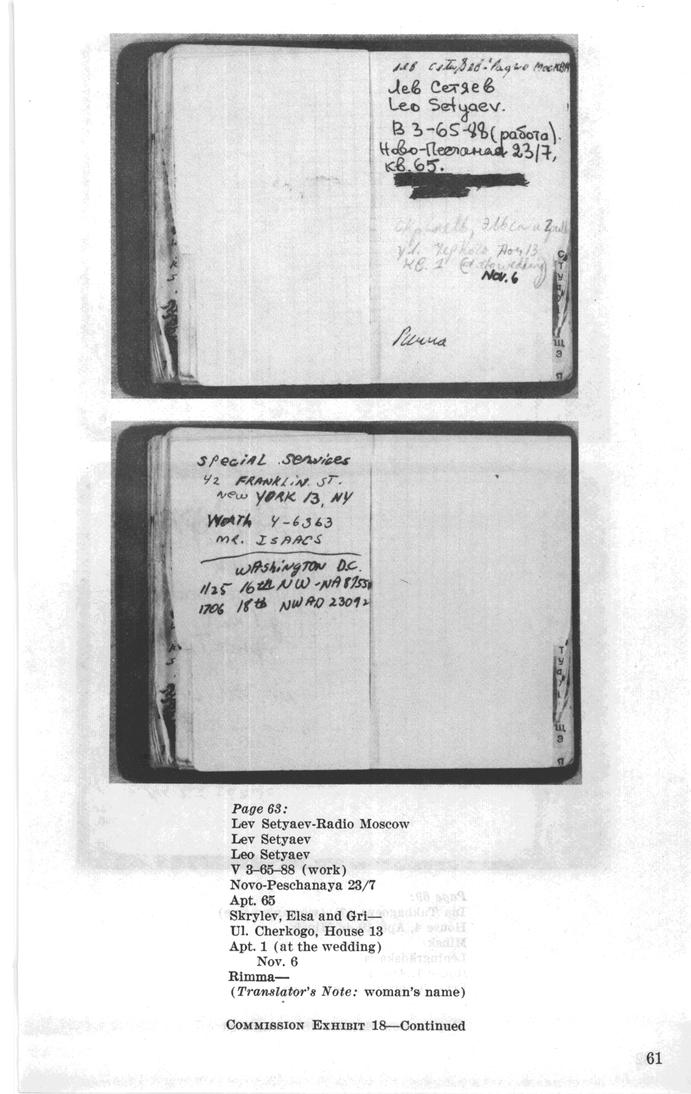 Лев Сетяев-Радио Москва
Лев Сетяев
Leo Setyaev.
В 3-65-88 (работа).
Ново-Песчаная 23/7,
кв. 65.
ул. Дом 13
кв. 1 (at the wedding)
Nov. 6
Римма
С
Т
У
Щ
Э
SPECIAL SERVICES
42 FRANKLIN ST.
NEW YORK 13, NY
WORTH 4-6363
MR. ISAACS
WASHINGTON D.C.
1125 16th NW-NA 8
1706 18th NW AD 23092
Т
У
Щ
Э
Page 63:
Lev Setyaev-Radio Moscow
Lev Setyaev
Leo Setyaev
V 3–65–88 (work)
Novo-Peschanaya 23/7
Apt. 65
Skrylev, Elsa and Gri—
Ul. Cherkogo, House 13
Apt. 1 (at the wedding)
Nov. 6
Rimma—
(Translator's Note: woman's name)
COMMISSION EXHIBIT 18—Continued
61